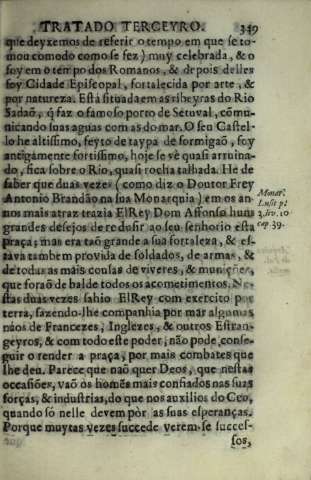 TRATADO TERCEYRO. 349
que deyxemos de referir o tempo em que se to-
mou comodo como se fez) muy celebrada, & o
foy em o tempo dos Romanos, & depois delles
foy Cidade Episcopal, fortalecida por arte, &
por natureza. Està situada em as ribeyras do Rio
Sadaõ, q̃ faz o famoso porto de Setuval, cõmu-
nicando suas aguas com as do mar. O seu Castel-
lo he altissimo, feyto de taypa de formigaõ, foy
antigamente fortissimo, hoje se vè quasi arruina-
do, fica sobre o Rio, quasi rocha talhada. He de
saber que duas vezes (como diz o Doutor Frey
Antonio Brandaõ na sua Monarquia) em os an-
nos mais atraz trazia ElRey Dom Affonso huns
grandes desejos de redusir ao seu senhorio esta
praça; mas era taõ grande a sua fortaleza, & es-
tava tambem provida de soldados, de armas, &
de todas as mais cousas de viveres, & munições,
que foraõ de balde todos os acometimentos. Nes-
tas duas vezes sahio ElRey com exercito por
terra, fazendo-lhe companhia por mar algumas
náos de Francezes, Inglezes, & outros Estran-
geyros, & com todo este poder, não pode conse-
guir o render a praça, por mais combates que
lhe deu. Parece que naõ quer Deos, que nestas
occasiões, vaõ os homẽs mais confiados nas suas
forças, & industrias, do que nos auxilios do Ceo,
quando só nelle devem pòr as suas esperanças.
Porque muytas vezes succede verem-se succes-
sos,
Monar.
Lusit. pt
3. liv. 10
cap 39.